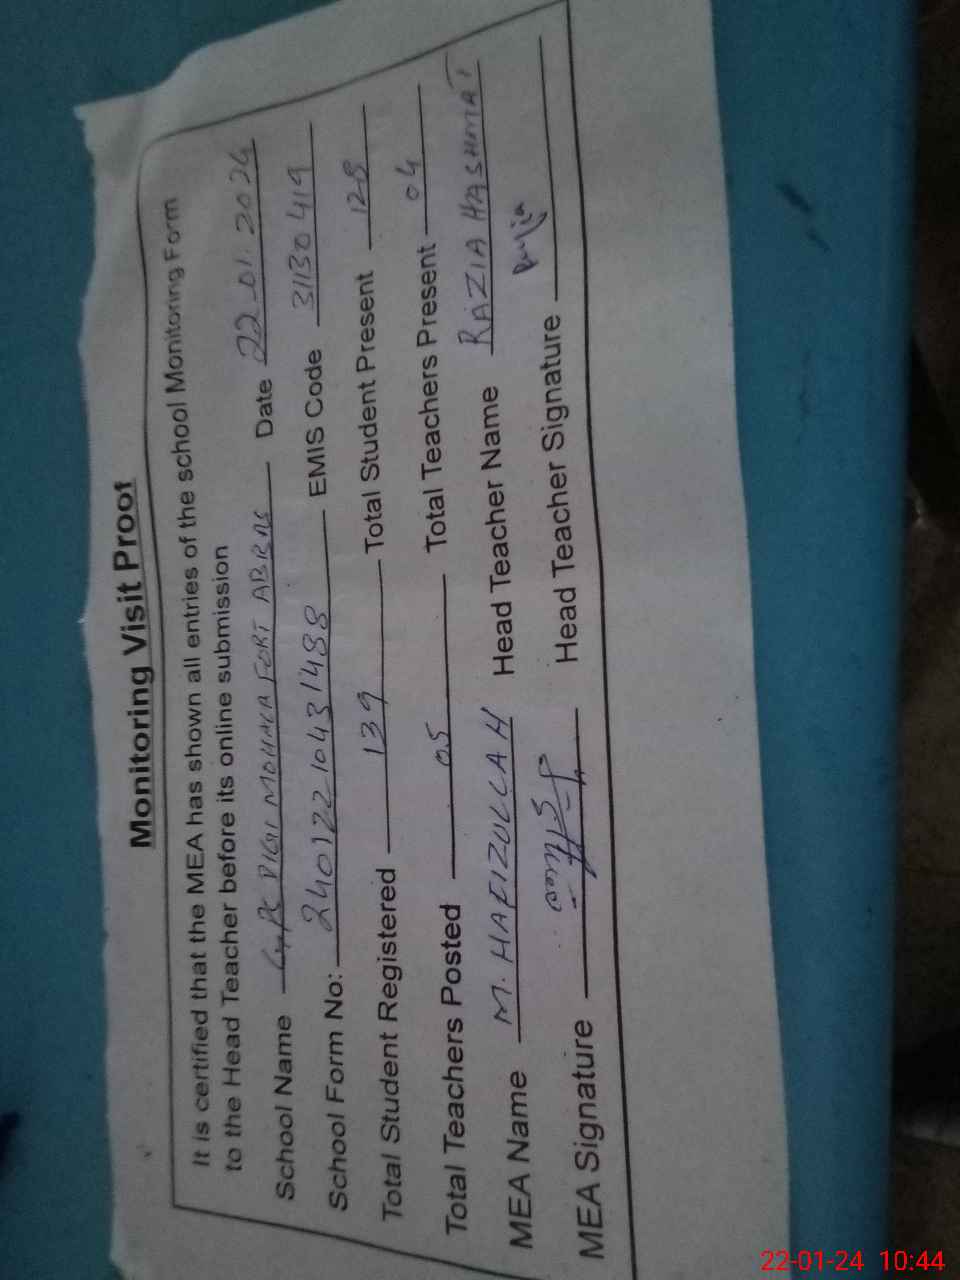 Monitoring Visit Proof
It is certified that the MEA has shown all entries of the school Monitoring Form
to the Head Teacher before its online submission
School Name MOHALA FORT ABBAS Date 22.01.2024
School Form No: 24012210431488 EMIS Code 31130419
Total Student Registered 139 Total Student Present 128
Total Teachers Posted 05 Total Teachers Present 04
MEA Name M. HAFIZULLAH Head Teacher Name RAZIA HASHMAT
MEA Signature Head Teacher Signature
22-01-24 10:44